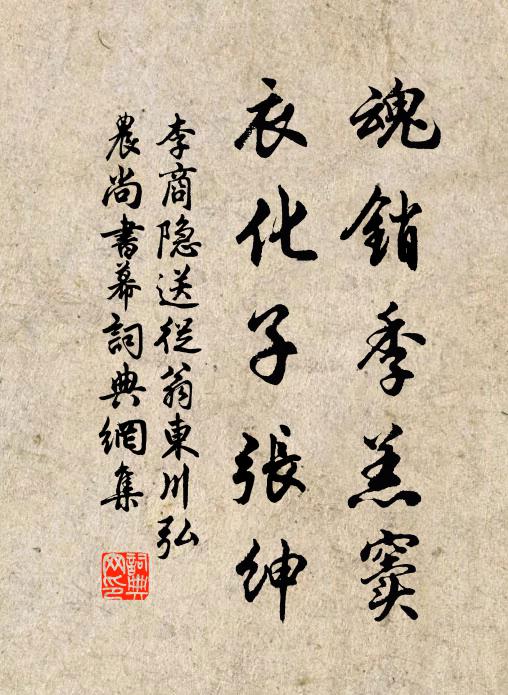 魂銷季羔竇
衣化子張紳
李商隐送從翁東川弘
農尚書幕詞典網集
詞典
网印